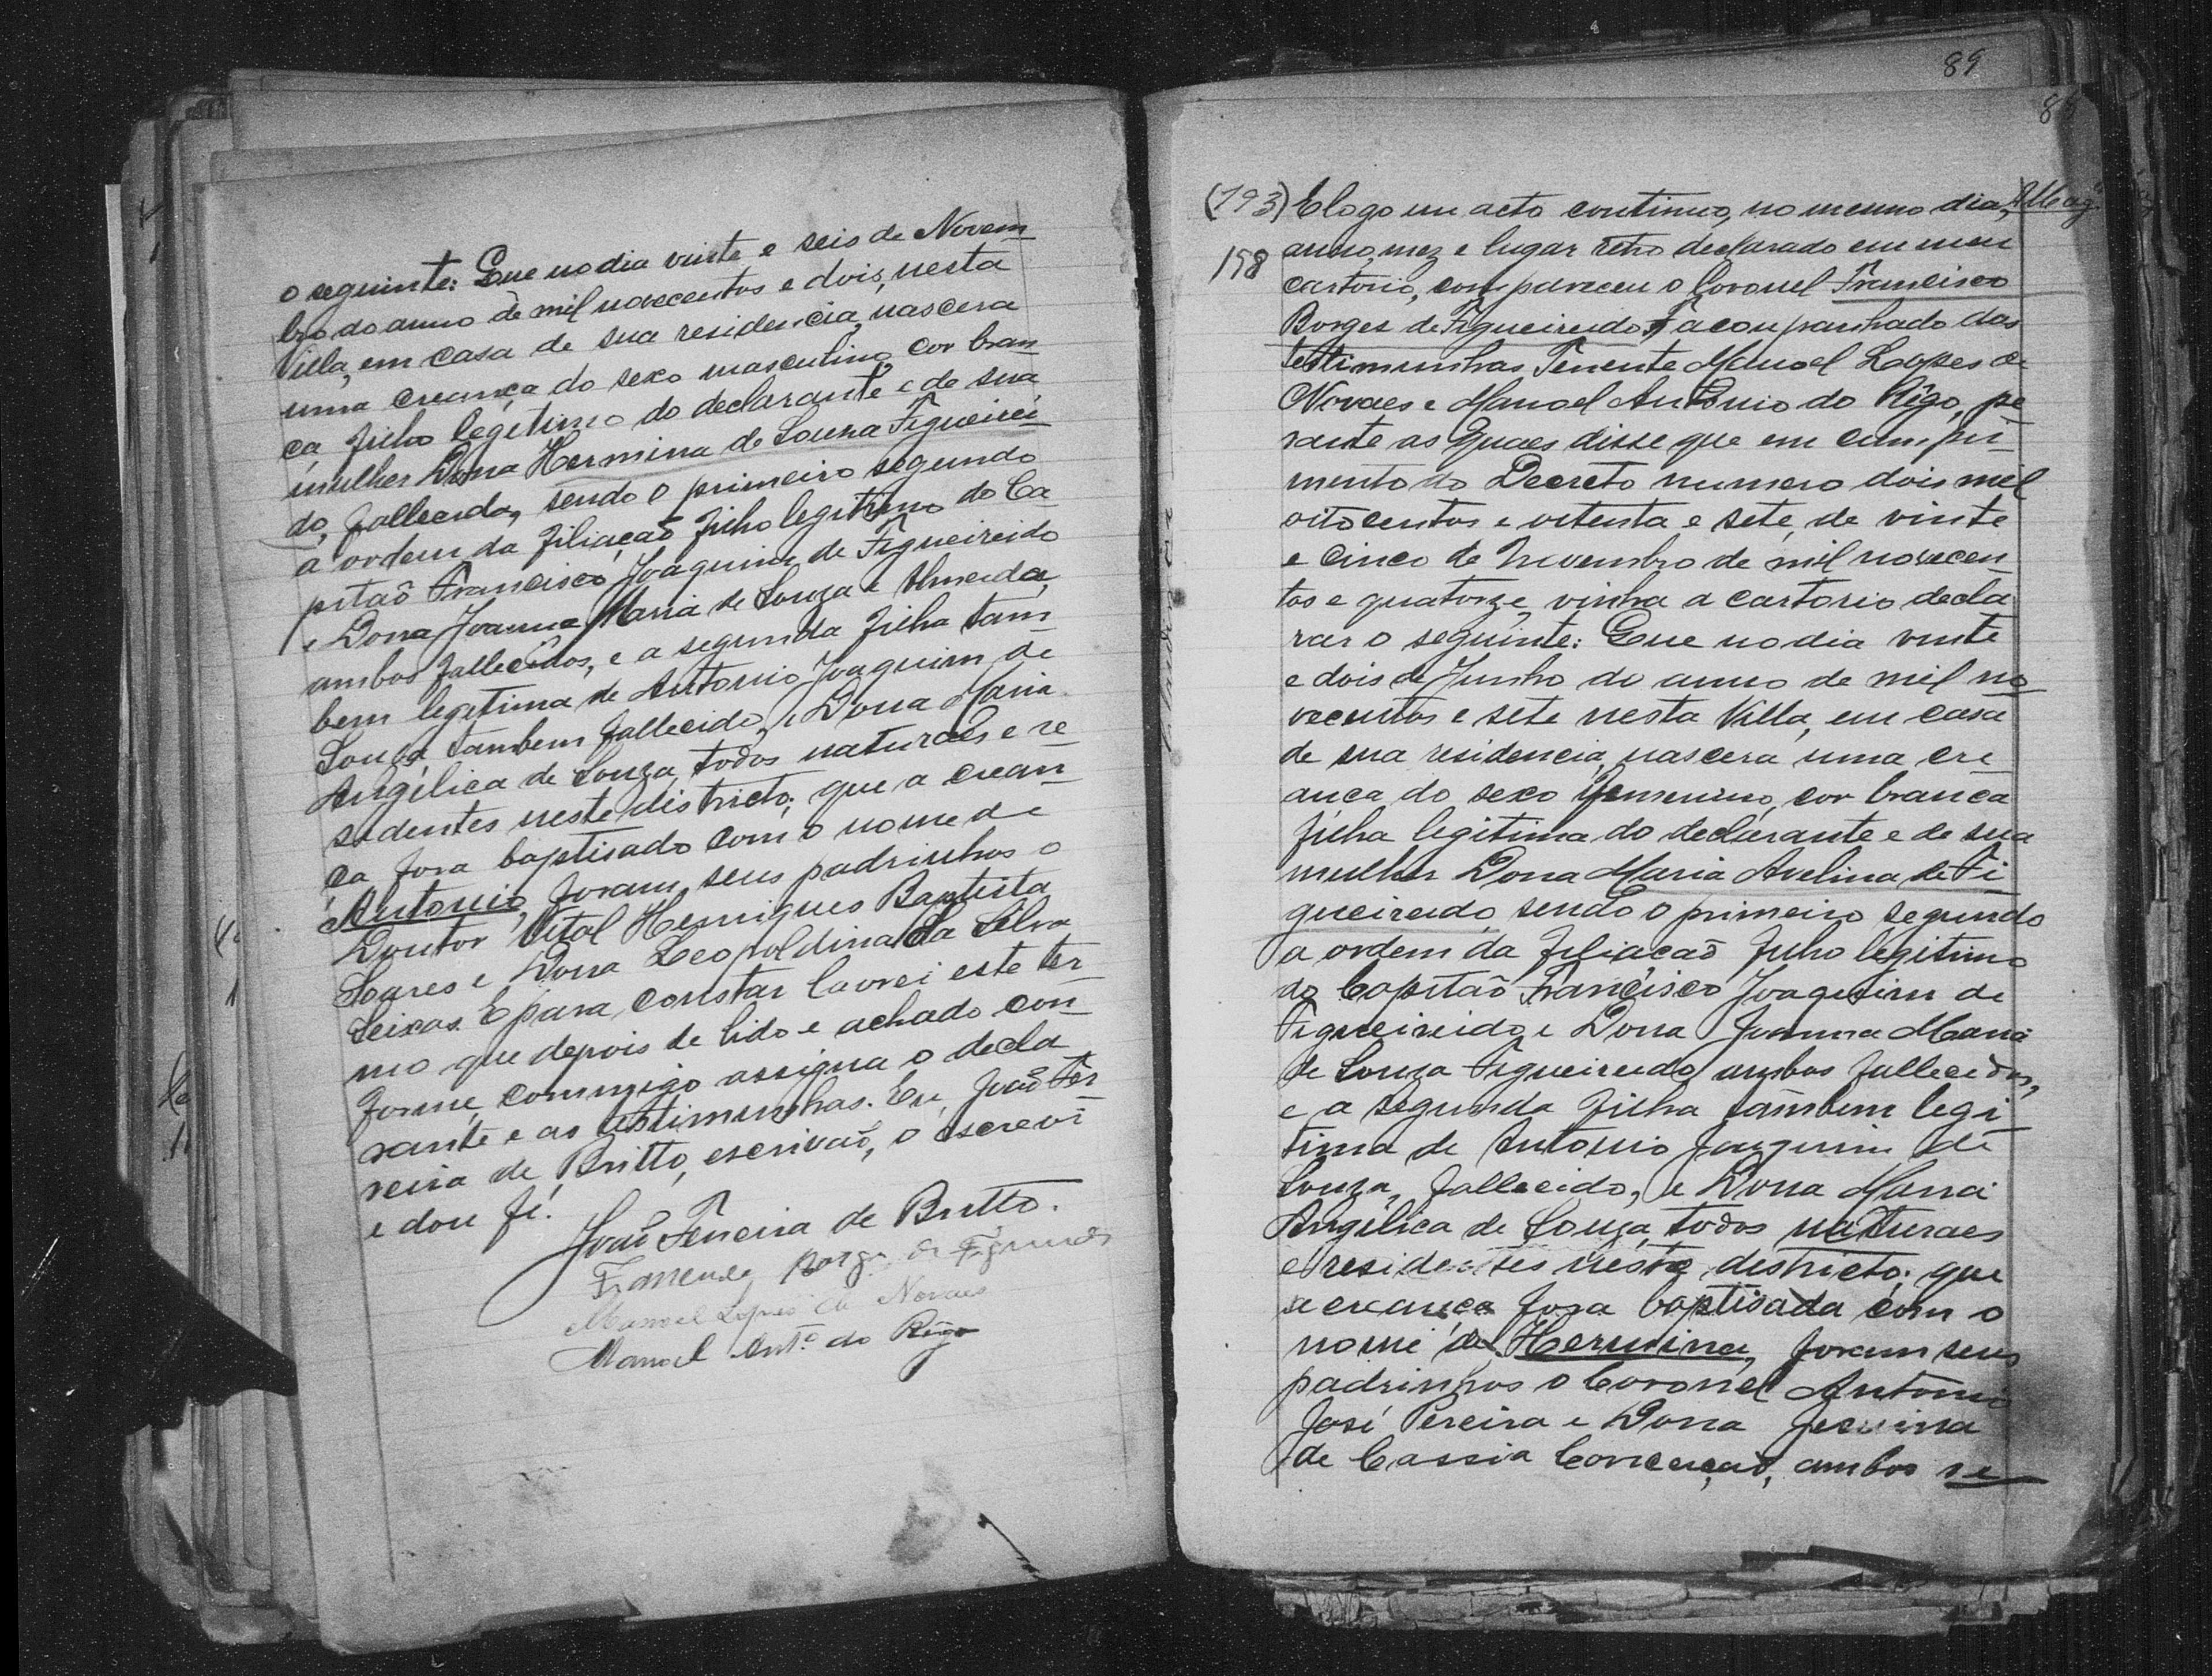 o seguinte: Que no dia vinte e seis de Novem
bro do anno de mil novecentos e dois, nesta
Villa, em casa de sua residencia, nascera
uma creança do sexo masculino, cor bran
ca, filho legitimo do declarante e de sua
mulher Dona Hermina de Souza Figueirei
do, fallecida, sendo o primeiro segundo
a ordem da filiação filho legitimo do Ca
pitão Francisco Joaquim de Figueireido
e Dona Joanna Maria de Souza e Almeida,
ambos fallecidos, e a segunda filha tam
bem legitima de Antonio Joaquim de
Souza, tambem fallecido, e Dona Maria
Angelica de Souza, todos naturaes e re
sidentes neste districto; que a crean
ça fora baptisado com o nome de
Antonio, foram seus padrinhos o
Doutor Vital Henriques Baptista
Soares e Dona Leopoldina da Silva
Seixas. E para constar lavrei este ter
mo que depois de lido e achado con
forme, commigo assigna o decla
rante e as testimunhas. Eu, João Fer
reira de Britto, escrivão, o escrevi
e dou fé.
João Ferreira de Britto.
Borges de
Manoel Lopes de Novaes
Manoel Antº do Rêgo
89
(193) E logo em acto continuo, no mesmo dia,
158 anno, mez e lugar retro declarado em meu
cartorio, compareceu o Coronel Francisco
Borges de Figueireido, acompanhado das
testimunhas Tenente Manoel Lopes de
Novaes e Manoel Antonio do Rêgo, pe
rante as quaes disse que em cumpri
mento do Decreto numero dois mil
oitocentos e oitenta e sete, de vinte
e cinco de Novembro de mil novecen
tos e quatorze, vinha a cartorio decla
rar o seguinte: Que no dia vinte
e dois de Junho do anno de mil no
vecentos e sete nesta Villa, em casa
de sua residencia, nascera uma cre
ança do sexo femenino, cor branca
filha legitima do declarante e de sua
mulher Dona Maria Avelina de Fi
gueireido, sendo o primeiro segundo
a ordem da filiacaõ filho legitimo
do Capitão Francisco Joaquim de
Figueireido, e Dona Joanna Maria
de Souza Figueireido, ambos fallecidos,
e a segunda filha tambem legi
tima de Antonio Joaquim de
Souza, fallecido, e Dona Maria
Angélica de Souza, todos naturaes
e residentes neste districto; que
a creança fora baptisada com o
nome de Hermina, foram seus
padrinhos o Coronel Antonio
José Pereira e Dona
de Cassia Conceição, ambos re